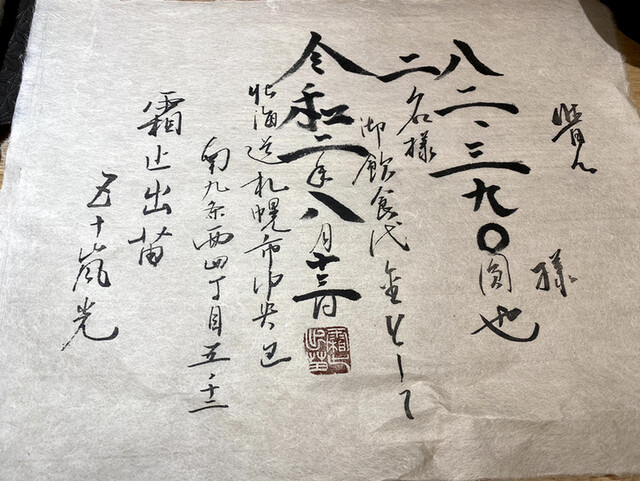 様
八二、三九〇圓也
二名様
御飲食代金として
令和二年八月十三日
北海道札幌市中央区
南九条西四丁目五・十二
霜止出苗
五十嵐光
霜止出苗